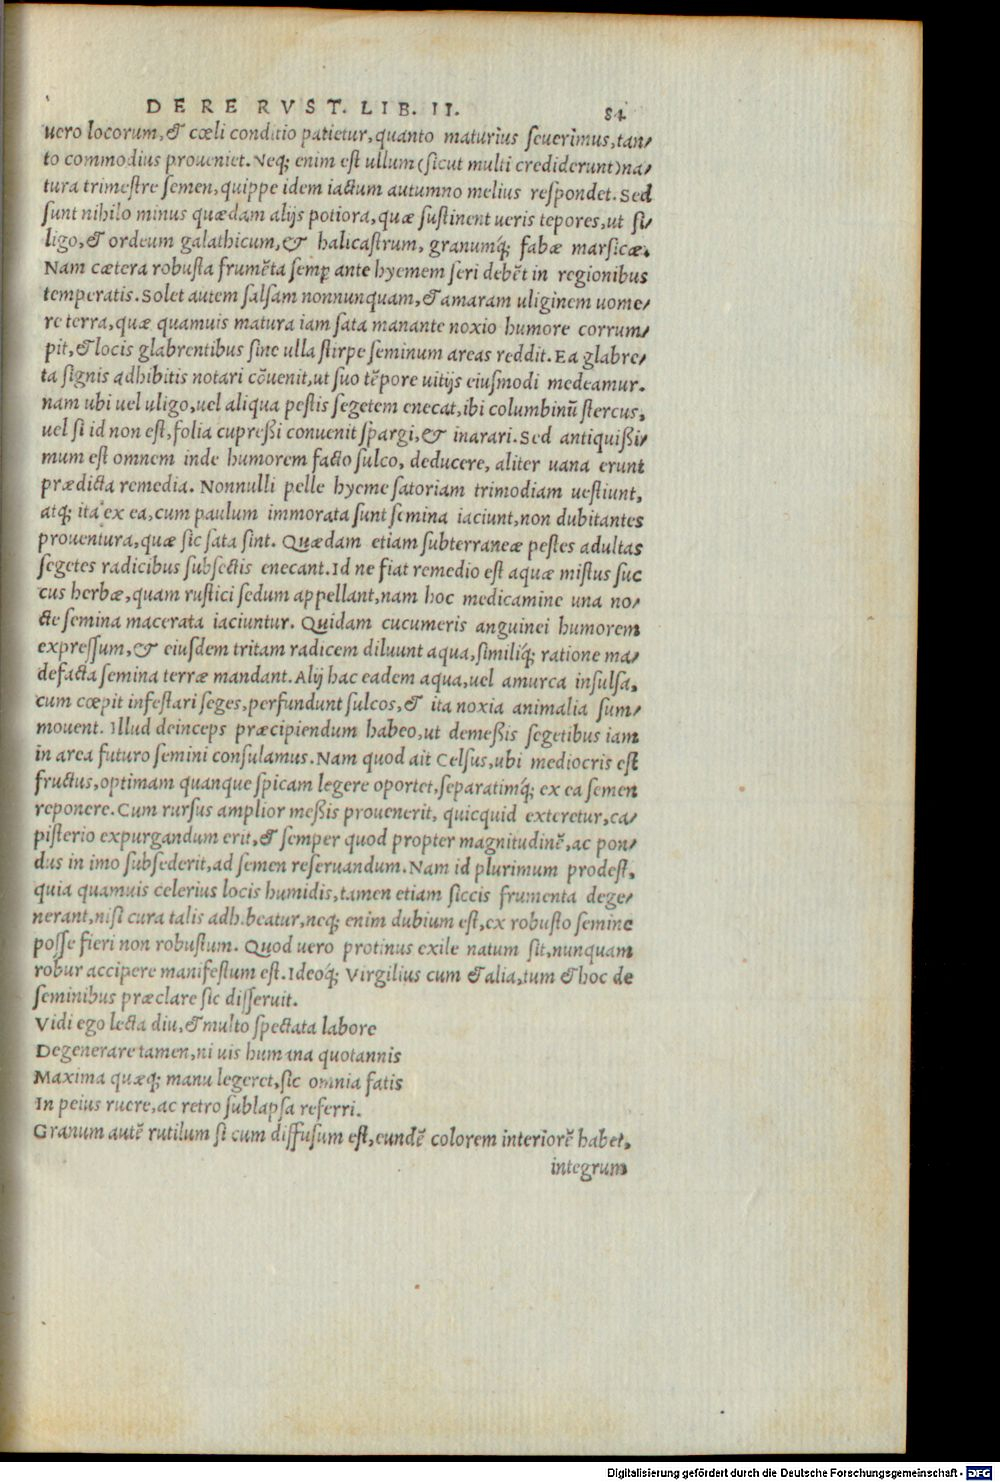 DE RE RVST. LIB. II. 84
uero locorum, & cœli conditio patietur, quanto maturius seuerimus, tan/
to commodius proueniet. Neq; enim est ullum (sicut multi crediderunt) na/
tura trimestre semen, quippe idem iactum autumno melius respondet. Sed
sunt nihilo minus quædam alijs potiora, quæ sustinent ueris tepores, ut si/
ligo, & ordeum galathicum, & halicastrum, granumq́; fabæ marsicæ.
Nam cætera robusta frumēta semꝑ ante hyemem seri debēt in regionibus
temperatis. Solet autem salsam nonnunquam, & amaram uliginem uome/
re terra, quæ quamuis matura iam sata manante noxio humore corrum/
pit, & locis glabrentibus sine ulla stirpe seminum areas reddit. Ea glabre/
ta signis adhibitis notari cōuenit, ut suo tēpore uitijs eiusmodi medeamur.
nam ubi uel uligo, uel aliqua pestis segetem enecat, ibi columbinū stercus,
uel si id non est, folia cupreßi conuenit spargi, & inarari. Sed antiquißi/
mum est omnem inde humorem facto sulco, deducere, aliter uana erunt
prædicta remedia. Nonnulli pelle hyeme satoriam trimodiam uestiunt,
atq; ita ex ea, cum paulum immorata sunt semina iaciunt, non dubitantes
prouentura, quæ sic sata sint. Quædam etiam subterraneæ pestes adultas
segetes radicibus subsectis enecant. Id ne fiat remedio est aquæ mistus suc
cus herbæ, quam rustici sedum appellant, nam hoc medicamine una no/
cte semina macerata iaciuntur. Quidam cucumeris anguinei humorem
expressum, & eiusdem tritam radicem diluunt aqua, similiq́; ratione ma/
defacta semina terræ mandant. Alij hac eadem aqua, uel amurca insulsa,
cum cœpit infestari seges, perfundunt sulcos, & ita noxia animalia sum/
mouent. Illud deinceps præcipiendum habeo, ut demeßis segetibus iam
in area futuro semini consulamus. Nam quod ait Celsus, ubi mediocris est
fructus, optimam quanque spicam legere oportet, separatimq́; ex ea semen
reponere. Cum rursus amplior meßis prouenerit, quicquid exteretur, ca/
pisterio expurgandum erit, & semper quod propter magnitudinē, ac pon/
dus in imo subsederit, ad semen reseruandum. Nam id plurimum prodest,
quia quamuis celerius locis humidis, tamen etiam siccis frumenta dege/
nerant, nisi cura talis adhibeatur, neq; enim dubium est, ex robusto semine
posse fieri non robustum. Quod uero protinus exile natum sit, nunquam
robur accipere manifestum est. Ideoq́; Virgilius cum & alia, tum & hoc de
seminibus præclare sic disseruit.
Vidi ego lecta diu, & multo spectata labore
Degenerare tamen, ni uis humana quotannis
Maxima quæq; manu legeret, sic omnia fatis
In peius ruere, ac retro sublapsa referri.
Granum autē rutilum si cum diffusum est, eundē colorem interiorē habet,
integrum
Digitalisierung gefördert durch die Deutsche Forschungsgemeinschaft - DFG